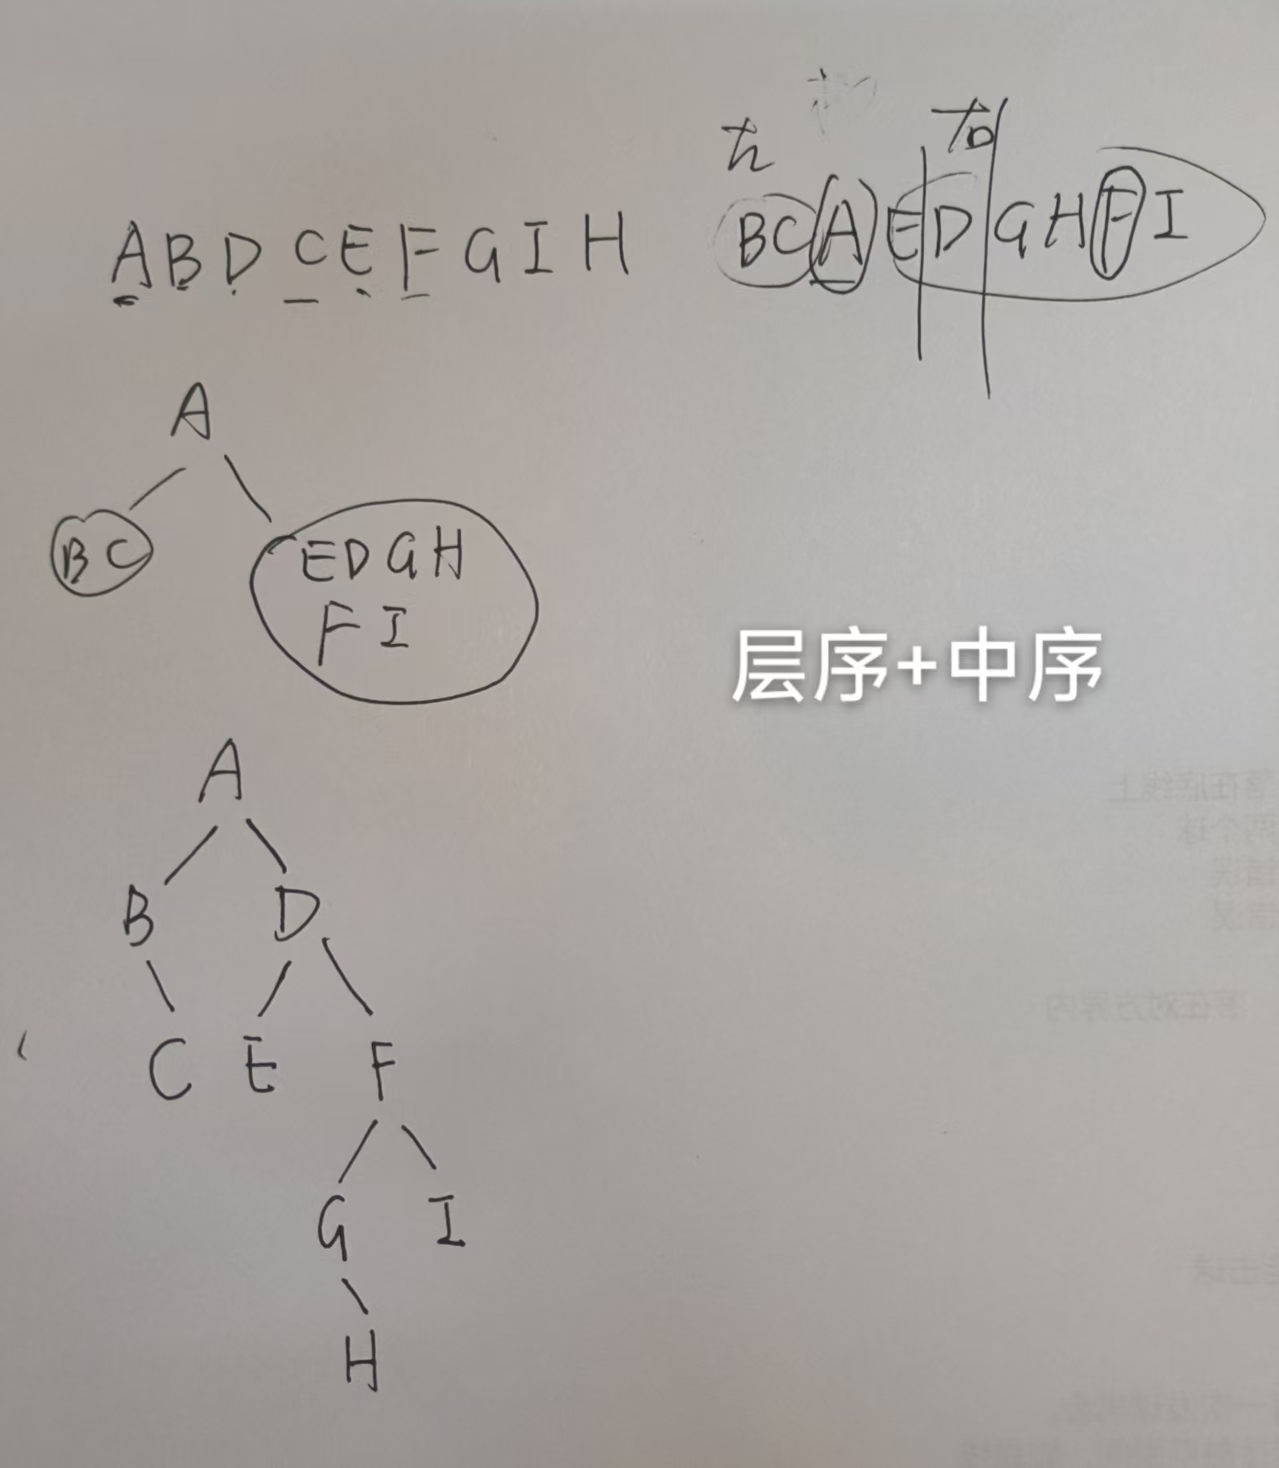 左 右
ABDCEFGIH BCAEDGHFI
A
BC EDGH
FI
层序+中序
A
B D
C E F
G I
H